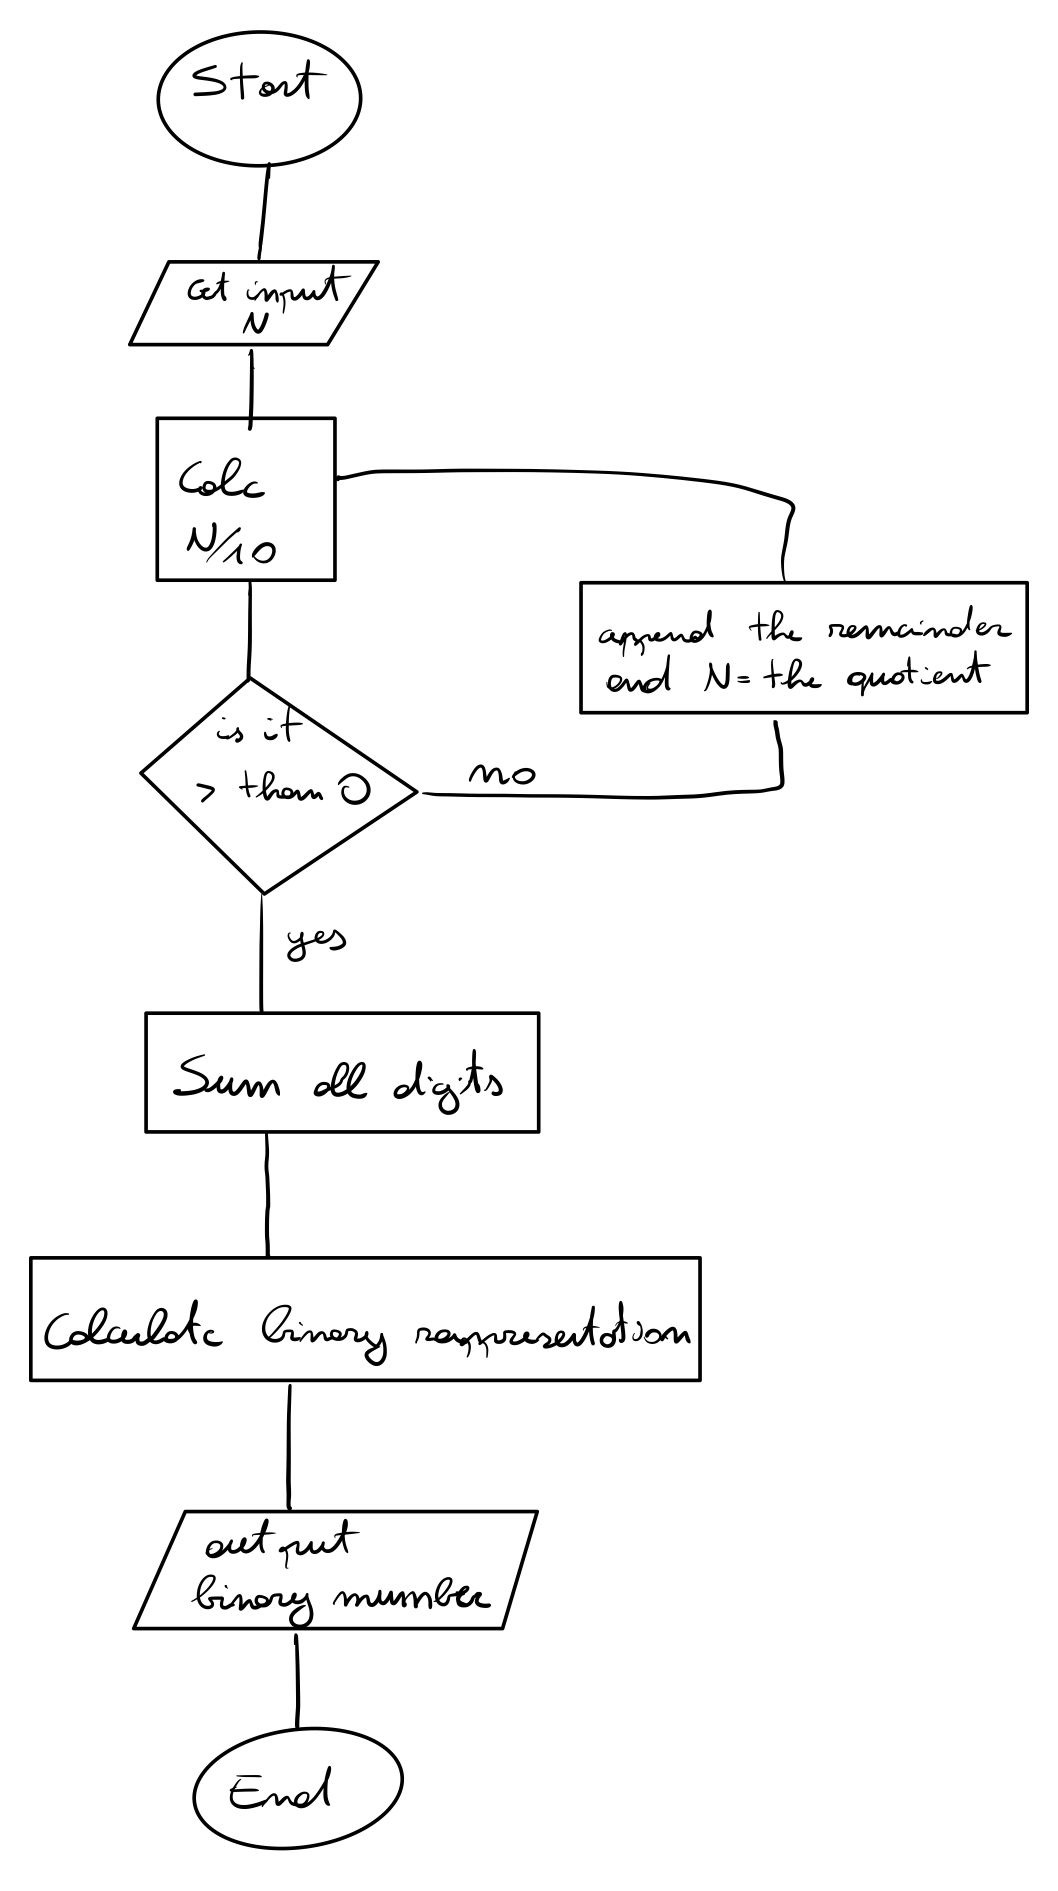 Start
Get input
N
Calc
N/10
append the remainder
and N= the quotient
is it
> than 0
no
yes
Sum all digits
Calculate binary rappresentation
output
binary number
End